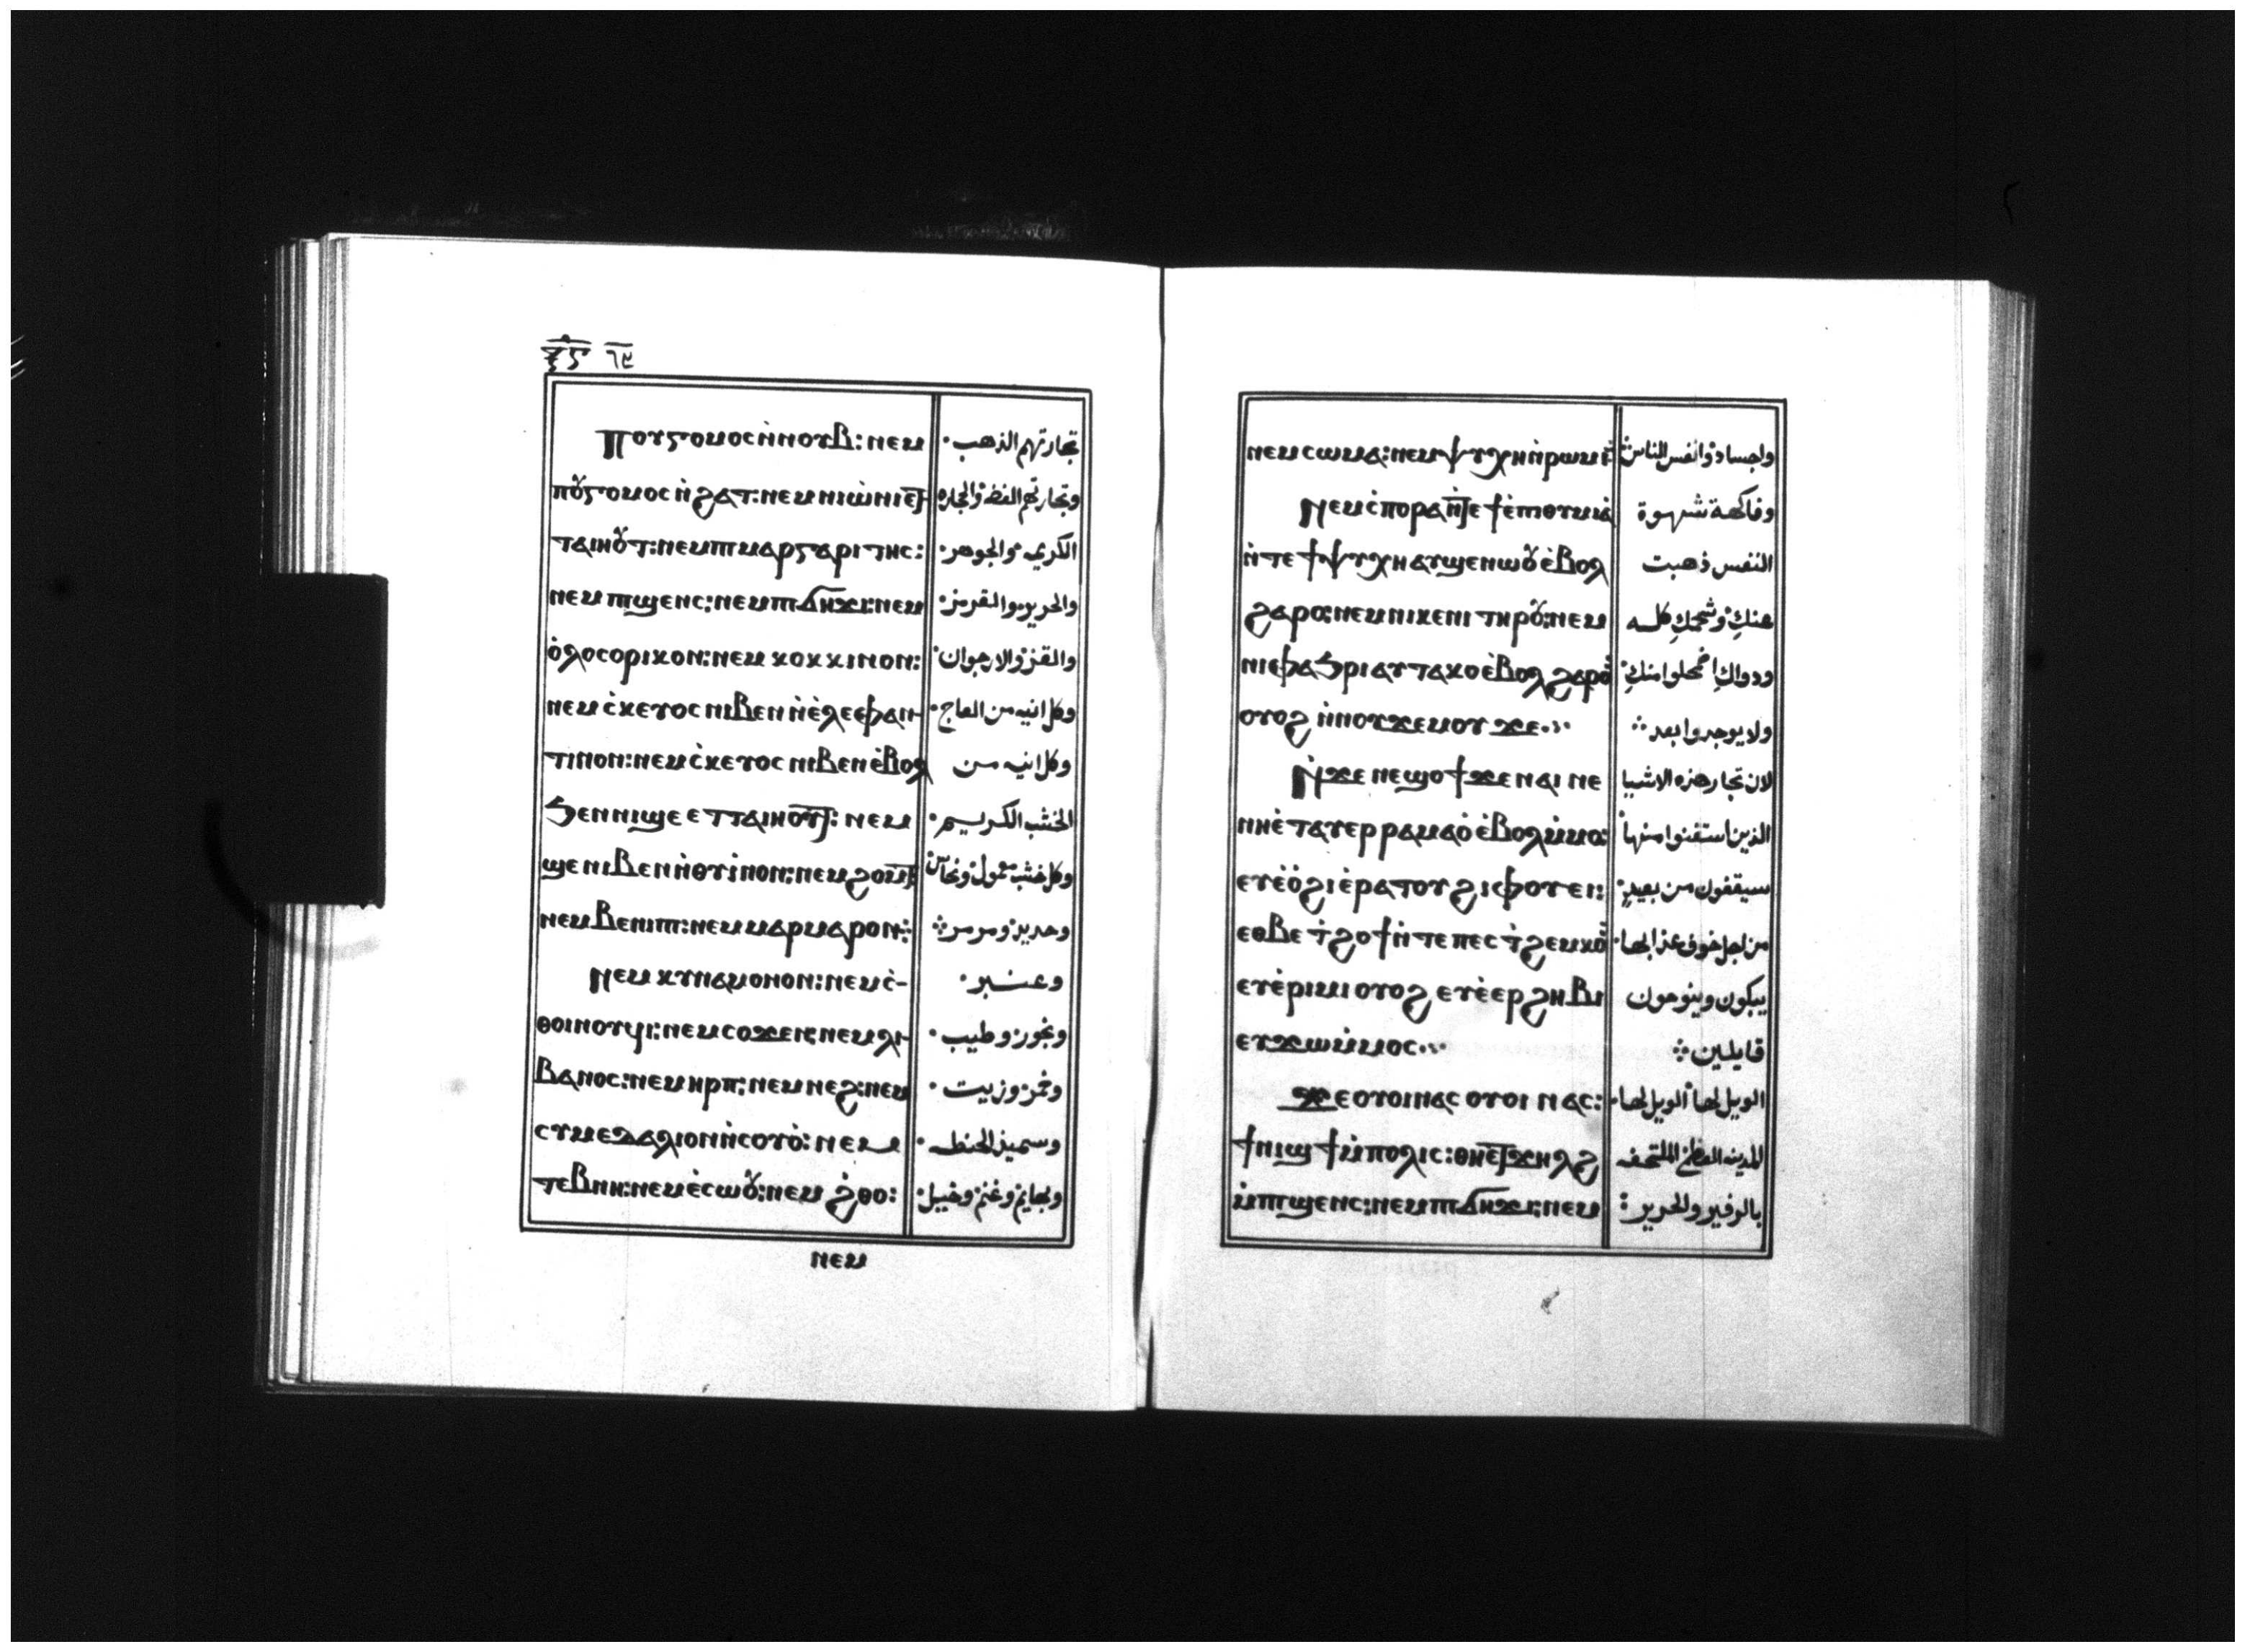 ⲝ̅ⲋ̅ ٦٩
ⲡⲟⲩⲅⲟⲙⲟⲥ ⲛ̀ⲛⲟⲩⲃ: ⲛⲉⲙ تجارتهم الذهب·
ⲡⲟⲩ̆ⲅⲟⲙⲟⲥ ⲛ̀ϩⲁⲧ: ⲛⲉⲙ ⲛⲓⲱ̀ⲛⲓ ⲉⲧ وتجارتهم الفضه والحجاره
ⲧⲁⲓⲏⲟⲩ̆ⲧ: ⲛⲉⲙ ⲡⲓⲙⲁⲣⲅⲁⲣⲓⲧⲏⲥ: الكريمه والجوهر·
ⲛⲉⲙ ⲡⲓϣⲉⲛⲥ: ⲛⲉⲙ ⲡⲓϭⲏϫⲓ: ⲛⲉⲙ والحرير والقرمز·
ⲟ̀ⲗⲟⲥⲟⲣⲓⲕⲟⲛ: ⲛⲉⲙ ⲕⲟⲕⲕⲓⲛⲟⲛ: والقز والارجوان·
ⲛⲉⲙ ⲥ̀ⲕⲉⲩⲟⲥ ⲛⲓⲃⲉⲛ ⲛ̀ⲉ̀ⲗⲉⲫⲁⲛ- وكل انيه من العاج·
ⲧⲓⲛⲟⲛ: ⲛⲉⲙ ⲥ̀ⲕⲉⲩⲟⲥ ⲛⲓⲃⲉⲛ ⲉ̀ⲃⲟⲗ وكل انيه من
ϧⲉⲛ ⲛⲓϣⲉ ⲉⲧⲧⲁⲓⲏⲟⲩⲧ: ⲛⲉⲙ الخشب الكريم·
ϣⲉ ⲛⲓⲃⲉⲛ ⲛ̀ⲑⲩⲓ̀ⲛⲟⲛ: ⲛⲉⲙ ϩⲟⲙⲧ: وكل خشب معمول ونحاس
ⲛⲉⲙ ⲃⲉⲛⲓⲡⲓ: ⲛⲉⲙ ⲙⲁⲣⲙⲁⲣⲟⲛ: وحديد ومرمر
ⲛⲉⲙ ⲕⲩⲛⲁⲙⲟⲛⲟⲛ: ⲛⲉⲙ ⲥ̀- وعنبر·
ⲑⲟⲓⲛⲟⲩϥⲓ: ⲛⲉⲙ ⲥⲟϫⲉⲛ: ⲛⲉⲙ ⲗⲓ- وبخور وطيب·
ⲃⲁⲛⲟⲥ: ⲛⲉⲙ ⲏⲣⲡ: ⲛⲉⲙ ⲛⲉϩ: ⲛⲉⲙ وخمر وزيت·
ⲥⲩⲙⲉⲇⲁⲗⲓⲟⲛ ⲛ̀ⲥⲟⲩⲟ̀: ⲛⲉⲙ وسميذ الحنطه·
ⲧⲉⲃⲛⲏ: ⲛⲉⲙ ⲉ̀ⲥⲱⲟⲩ̆: ⲛⲉⲙ ϩ̀ⲑⲟ: وبهايم وغنم وخيل·
ⲛⲉⲙ
ⲛⲉⲙ ⲥⲱⲙⲁ: ⲛⲉⲙ ⲯⲩⲭⲏ ⲛ̀ⲣⲱⲙⲓ: واجساد وانفس الناس
ⲛⲉⲙ ⲥ̀ⲡⲟⲣⲁ ⲛ̀ⲧⲉ ϯⲉ̀ⲡⲓⲑⲩⲙⲓⲁ̀ وفاكهة شهوة
ⲛ̀ⲧⲉ ϯⲯⲩⲭⲏ ⲁⲩϣⲉⲛⲱⲟⲩ̆ ⲉ̀ⲃⲟⲗ النفس ذهبت
ϩⲁⲣⲟ: ⲛⲉⲙ ⲛⲓⲕⲉⲛⲓ ⲧⲏⲣⲟⲩ̆: ⲛⲉⲙ عنكِ وشحمكِ كله
ⲛⲓⲉⲫⲁϧⲣⲓ ⲁⲩⲧⲁⲕⲟ ⲉ̀ⲃⲟⲗ ϩⲁⲣⲟ ودواكِ اضمحلوا منكِ·
ⲟⲩⲟϩ ⲛ̀ⲛⲟⲩϫⲉⲙⲟⲩ ϫⲉ ولا يوجدوا بعد
ⲛ̀ϫⲉ ⲛⲉϣⲟϯ ϫⲉ ⲛⲁⲓ ⲛⲉ لان تجار هذه الاشيا
ⲛⲏⲉ̀ⲧⲁⲩⲉⲣⲣⲁⲙⲁⲟ̀ ⲉ̀ⲃⲟⲗ ⲙ̀ⲙⲟ: الذين استغنوا منها
ⲉⲩⲉ̀ⲟ̀ϩⲓ ⲉ̀ⲣⲁⲧⲟⲩ ϩⲓⲫⲟⲩⲉⲓ: سيقفون من بعيدٍ
ⲉⲑⲃⲉ ⲧ̀ϩⲟϯ ⲛ̀ⲧⲉ ⲡⲉⲥⲧ̀ϩⲉⲙⲕⲟ من اجل خوف عذابها·
ⲉⲩⲉ̀ⲣⲓⲙⲓ ⲟⲩⲟϩ ⲉⲩⲉ̀ⲉⲣϩⲏⲃⲓ يبكون وينوحون
ⲉⲩϫⲱ ⲙ̀ⲙⲟⲥ قايلين
ϫⲉ ⲟⲩⲟⲓ ⲛⲁⲥ ⲟⲩⲟⲓ ⲛⲁⲥ: الويل لها الويل لها
ϯⲛⲓϣϯ ⲙ̀ⲡⲟⲗⲓⲥ: ⲑⲏⲉⲧϫⲏⲗϩ المدينه العظمى الملتحفه
ⲙ̀ⲡⲓϣⲉⲛⲥ: ⲛⲉⲙ ⲡⲓϭⲏϫⲓ: ⲛⲉⲙ بالرفير والحرير: